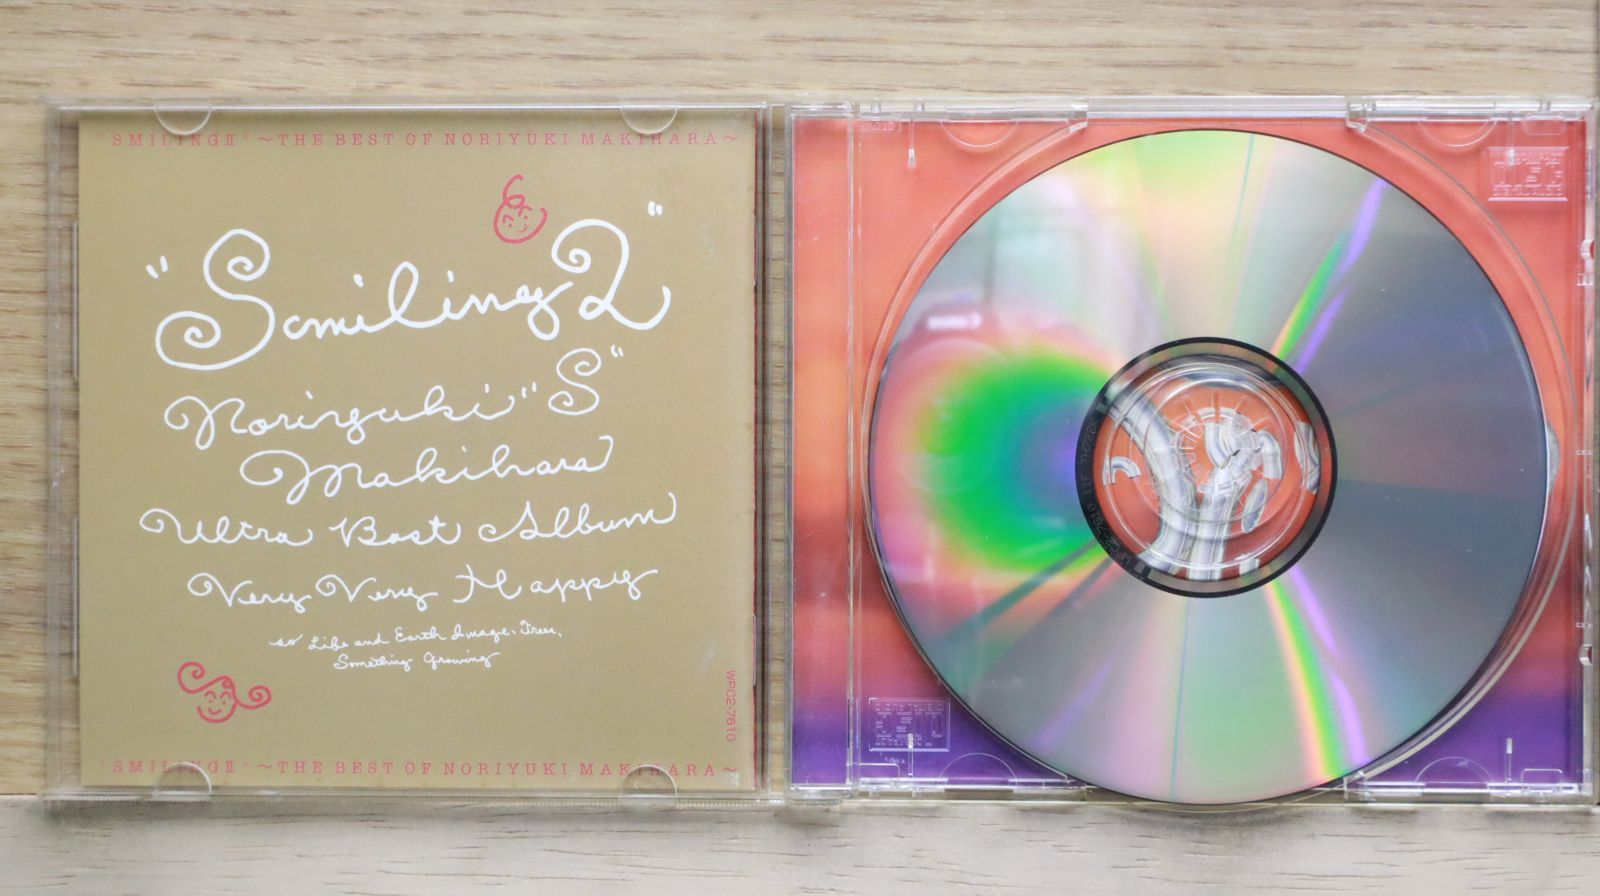 "SMILINGⅡ" ～THE BEST OF NORIYUKI MAKIHARA～
"Smiling 2"
Noriyuki "S"
Makihara
Ultra Best Album
Very Very Happy
so Life and Earth Image. Tree.
Something Growing
WPC2-7610
"SMILINGⅡ" ～THE BEST OF NORIYUKI MAKIHARA～
WPC2-7610